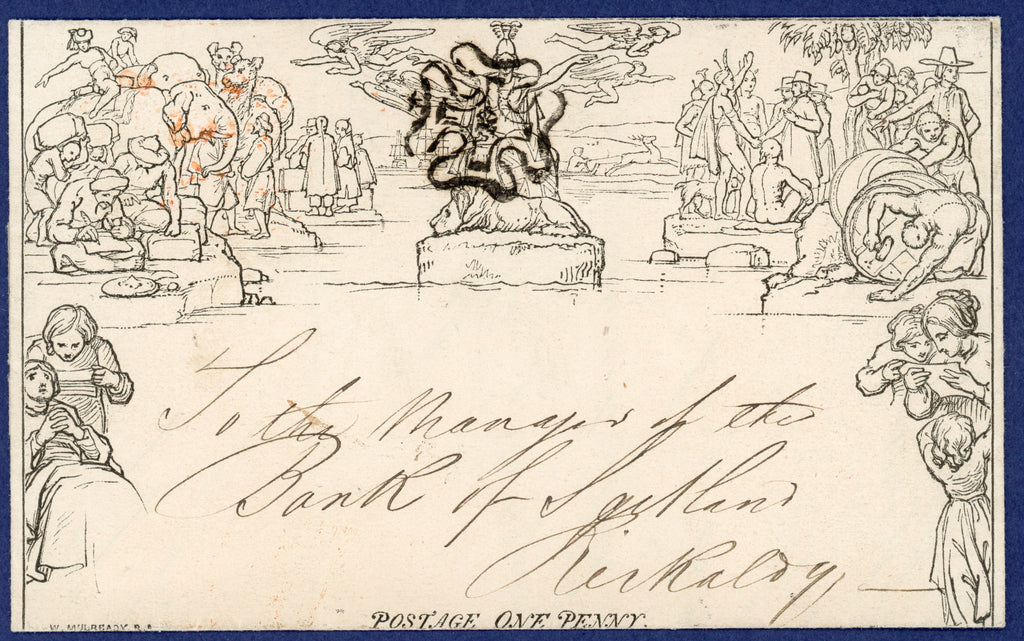 To the Manager of the
Bank of Scotland
Kirkaldy
W. MULREADY. R.A.
POSTAGE ONE PENNY.